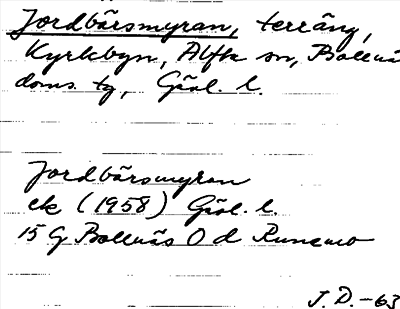 Jordbärsmyran, terräng,
Kyrkbyn, Alfta sn, Bollnäs
doms. tg, Gävl. l.
Jordbärsmyran
ek (1958) Gävl. l.
15 G Bollnäs O d Runemo
J. D. -63